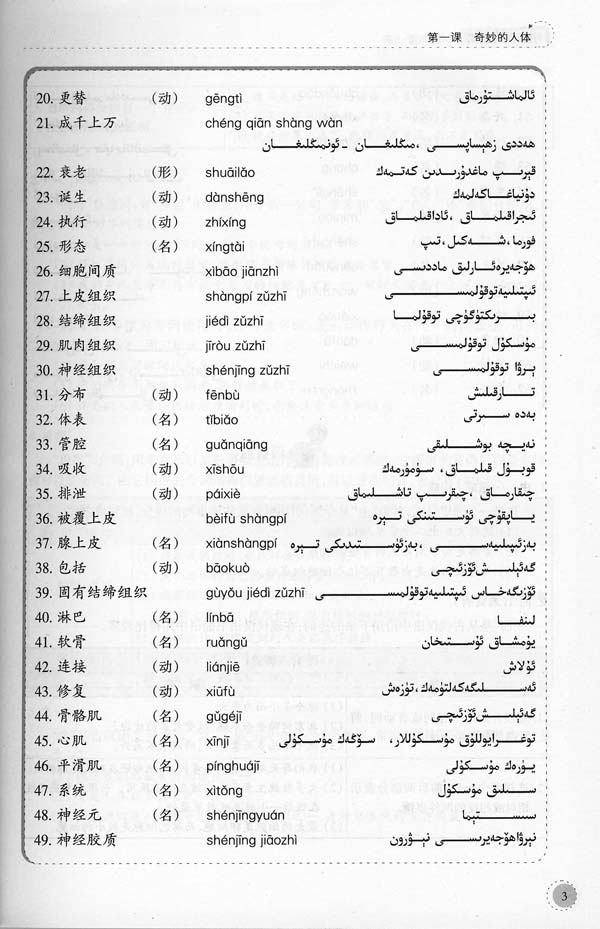 第一课 奇妙的人体
20. 更替 (动) gēngtì ئالماشتۇرماق
21. 成千上万 chéng qiān shàng wàn
ھەددى زەھىساپسى، مىڭلىغان - ئونمىڭلىغان
22. 衰老 (形) shuāilǎo قېرىپ ماغدۇرىدىن كەتمەك
23. 诞生 (动) dànshēng دۇنياغا كەلمەك
24. 执行 (动) zhíxíng ئىجراقىلماق، ئاداقىلماق
25. 形态 (名) xíngtài فورما، شەكىل، تىپ
26. 细胞间质 xìbāo jiānzhì ھۆجەيرەئارلىق ماددىسى
27. 上皮组织 shàngpí zǔzhī ئېپىتىلىيەتوقۇلمىسى
28. 结缔组织 jiédì zǔzhī بىرىكتۈرگۈچى توقۇلما
29. 肌肉组织 jīròu zǔzhī مۇسكۇل توقۇلمىسى
30. 神经组织 shénjīng zǔzhī نېرۋا توقۇلمىسى
31. 分布 (动) fēnbù تارقىلىش
32. 体表 (名) tǐbiǎo بەدە سىرتى
33. 管腔 (名) guǎnqiāng نەيچە بوشلىقى
34. 吸收 (动) xīshōu قوبۇل قىلماق، سۈمۈرمەك
35. 排泄 (动) páixiè چىقارماق، چىقىرىپ تاشلىماق
36. 被覆上皮 bèifù shàngpí ياپقۇچى ئۈستىنكى تېرە
37. 腺上皮 (名) xiànshàngpí بەزئېپىلىيەسى، بەزئۈستىدىكى تېرە
38. 包括 (动) bāokuò گەئىلىش ئۆزئىچى
39. 固有结缔组织 gùyǒu jiédì zǔzhī ئۆزىگەخاس ئېپىتىلىيەتوقۇلمىسى
40. 淋巴 (名) línbā لىنفا
41. 软骨 (名) ruǎngǔ يۇمشاق ئۇستىخان
42. 连接 (动) liánjiē ئۇلاش
43. 修复 (动) xiūfù ئەسلىگەكەلتۈمەك، تۈزەش
44. 骨骼肌 (名) gǔgéjī گەئىلىش ئۆزئىچى
45. 心肌 (名) xīnjī توغرايوللۇق مۇسكۇللار، سۆڭەك مۇسكۇلى
46. 平滑肌 (名) pínghuájī يۈرەك مۇسكۇلى
47. 系统 (名) xìtǒng سىلىق مۇسكۇل
48. 神经元 (名) shénjīngyuán سىستېما
49. 神经胶质 shénjīng jiāozhì نېرۋاھۆجەيرىسى نېۋرون
3